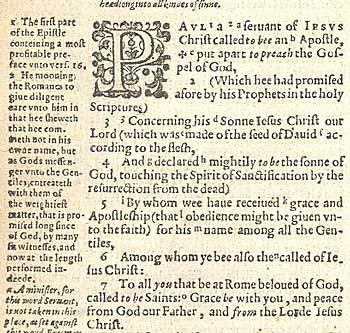 headlong into all kindes of sinne.
1 The first part
of the Epistle
conteining a most
profitable pre-
face vnto vers. 16.
2 He moouing
the Romanes to
giue diligent
eare vnto him in
that hee sheweth
that hee com-
meth not in his
owne name, but
as Gods messen-
ger vnto the Gen-
tiles, entreateth
with them of
the weightiest
matter, that is pro-
mised long since
of God, by many
fit witnesses, and
now at the length
performed in-
deede.
a A minister, for
this word Seruant,
is not taken in this
place, as set against
PAVL 1 2 a seruant of IESVS
Christ called to bee an b Apostle,
c put apart to preach the Gos-
pel of God,
2 (Which hee had promised
afore by his Prophets in the holy
Scriptures)
3 3 Concerning his d Sonne Iesus Christ our
Lord (which was e made of the seed of Dauid f ac-
cording to the flesh,
4 And g declared h mightily to be the sonne of
God, touching the Spirit of Sanctification by the
resurrection from the dead)
5 i By whom wee haue receiued k grace and
Apostleship (that l obedience might be giuen vn-
to the faith) for his m name among all the Gen-
tiles,
6 Among whom ye bee also the n called of Ie-
sus Christ:
7 To all you that be at Rome beloued of God,
called to be Saints: o Grace be with you, and peace
from God our Father, and from the Lorde Iesus
Christ.